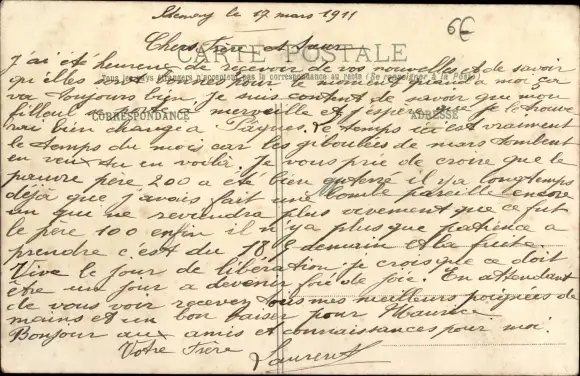 le 17 mars 1911
6€
Chers Frère et Sœur
CARTE POSTALE
J'ai été heureux de recevoir de vos nouvelles et de savoir
Tous les pays étrangers n'acceptent pas la correspondance au recto (Se renseigner à la Poste)
qu'elles sont bonnes pour le moment quant à moi ça
va toujours bien Je suis content de savoir que mon
filleul se porte à merveille et j'espère que je le trouve
CORRESPONDANCE
ADRESSE
rai bien changé à Pâques. Le temps ici est vraiment
le temps du mois car les giboulées de mars tombent
en veux tu en voilà. Je vous prie de croire que le
pauvre père 200 a été bien il y a longtemps
déjà que j'avais fait une bombe pareille encore
un qui ne reviendra plus vivement que ce fut
le père 100 enfin il n'y a plus que patience a
prendre c'est du 188 demain et la fuite.
Vive le jour de libération, je crois que ce doit
être un jour a devenir fou de joie. En attendant
de vous voir recevez tous mes meilleurs poignées de
mains et un bon baiser pour Maurice.
Bonjour aux amis et connaissances pour moi.
Votre Frère
Laurent